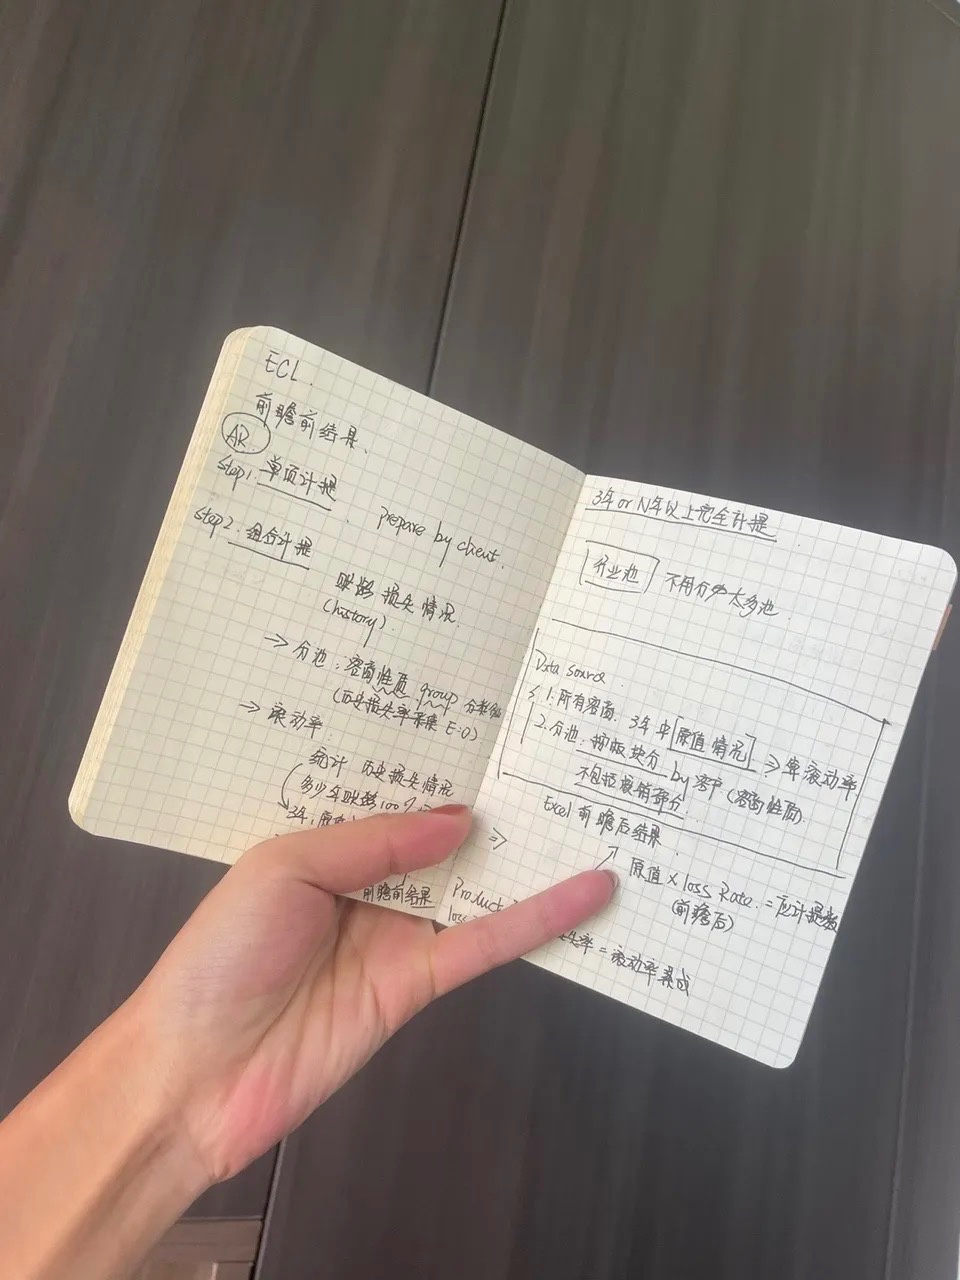 ECL.
前瞻前结果、
AR
Step1. 单项计提
Step2. 组合计提
prepare by client.
账龄 损失情况.
(history).
⇒ 分池: 客商性质 group
(历史损失率采集 E:0)
⇒ 滚动率:
统计 历史损失情况
多少年账龄100%
3年,
前瞻前结果
3年 or N年以上完全计提
行业池 不用分太多池.
Data source.
1. 所有客商. 3年中[原值情况] ⇒ 算滚动率
2. 分池: 按板块分 by 客户 (客商性质)
不包括核销部分.
Excel 前瞻后结果.
⇒
原值 × loss Rate. = 应计提数
(前瞻后)
Product
loss
失率 = 滚动率累成